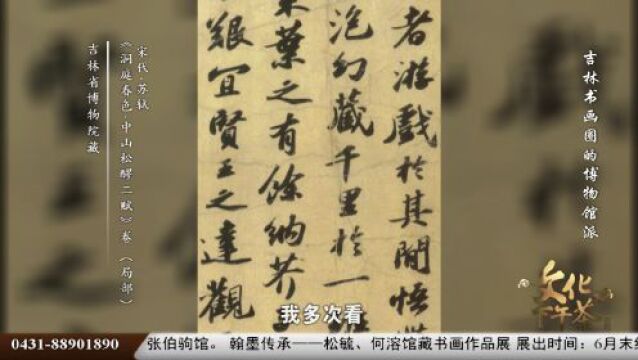 吉林书画圈的博物馆派
者游戲於其閒悟
泡幻藏千里於一
葉之有餘納芥
艱宜賢王之達觀
宋代·苏轼
《洞庭春色·中山松醪二赋》卷（局部）
吉林省博物院藏
文化
下午茶
我多次看
0431-88901890
张伯驹馆。 翰墨传承——松毓、何溶馆藏书画作品展 展出时间：6月末